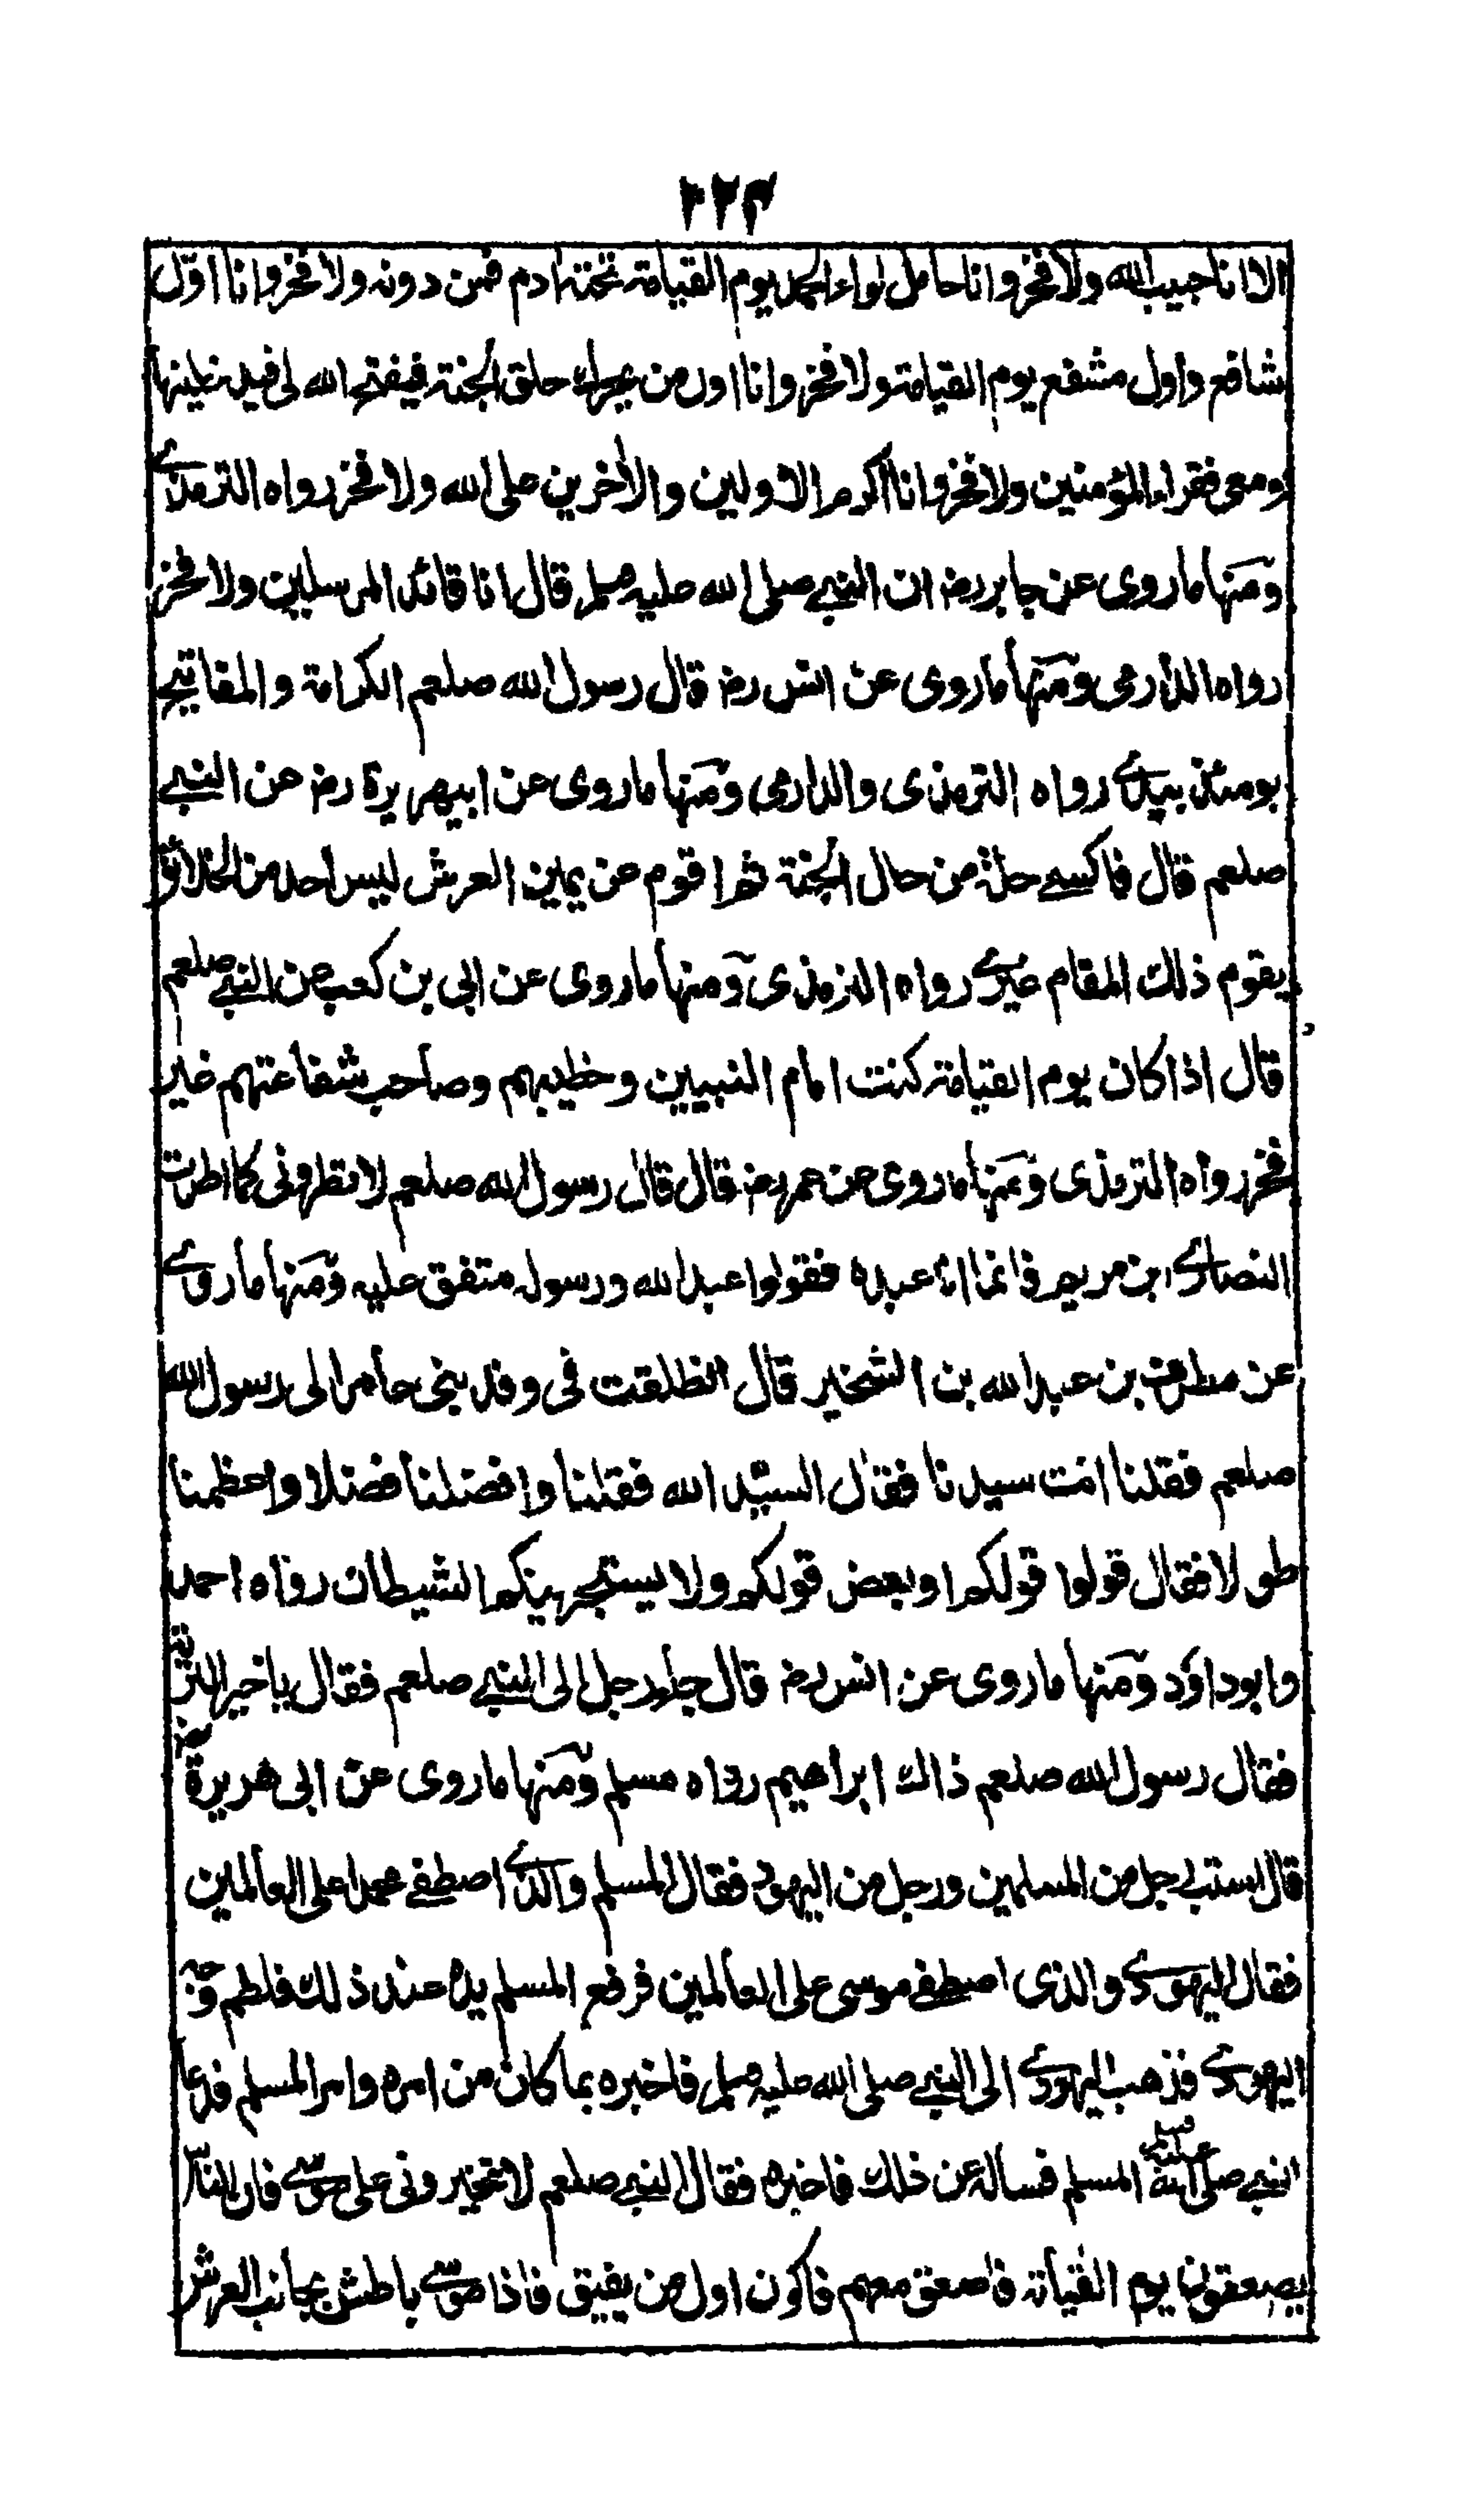 ٢٢٣
الا انا حبيب الله ولا فخر وانا حامل لواء الحمد يوم القيامة تحته ادم فمن دونه ولا فخر وانا اوّل
شافع واول مشفع يوم القيامة ولا فخر وانا اول من يحرك حلق الجنة فيفتح الله لى فيدخلينها
ومعى فقراء المؤمنين ولا فخر وانا اكرم الاولين والاخرين على الله ولا فخر رواه الترمذى
ومنها ما روى عن جابر رضـ ان النبى صلى الله عليه وسلم قال انا قائد المرسلين ولا فخر
رواه الدارمى ومنها ما روى عن انس رضـ قال رسول الله صلعم الكرامة والمفاتيح
يومئذ بيدى رواه الترمذى والدارمى ومنها ما روى عن ابيهريرة رضـ عن النبى
صلعم قال فاكسى حلة من حال الجنة ثم اقوم عن يمين العرش ليس احد من الخلائق
يقوم ذلك المقام غيرى رواه الترمذى ومنها ما روى عن ابى بن كعب عن النبى صلعم
قال اذا كان يوم القيامة كنت امام النبيين وخطيبهم وصاحب شفاعتهم غير
فخر رواه الترمذى ومنها ما روى عن عمر رضـ قال قال رسول الله صلعم لا تطرونى كما اطرت
النصارى ابن مريم فانما انا عبده فقولوا عبد الله ورسوله متفق عليه ومنها ما روى
عن مطرف بن عبد الله بن الشخير قال انطلقت فى وفد بنى عامر الى رسول الله
صلعم فقلنا انت سيدنا فقال السيّد الله فقلنا وافضلنا فضلا واعظمنا
طولا فقال قولوا قولكم او بعض قولكم ولا يستجرينكم الشيطان رواه احمد
وابو داؤد ومنها ما روى عن انس رضـ قال جاء رجل الى النبى صلعم فقال يا خير البرية
فقال رسول الله صلعم ذاك ابراهيم رواه مسلم ومنها ما روى عن ابى هريرة رضـ
قال استب رجل من المسلمين ورجل من اليهود فقال المسلم والذى اصطفى محمدا على العالمين
فقال اليهودى والذى اصطفى موسى على العالمين فرفع المسلم يده عند ذلك فلطم وجه
اليهودى فذهب اليهودى الى النبى صلى الله عليه وسلم فاخبره بما كان من امره وامر المسلم فدعا
النبى صلى الله عليه وسلم المسلم فساله عن ذلك فاخبره فقال النبى صلعم لا تخيرونى على موسى فان الناس
يصعقون يوم القيامة فاصعق معهم فاكون اول من يفيق فاذا موسى باطش بجانب العرش